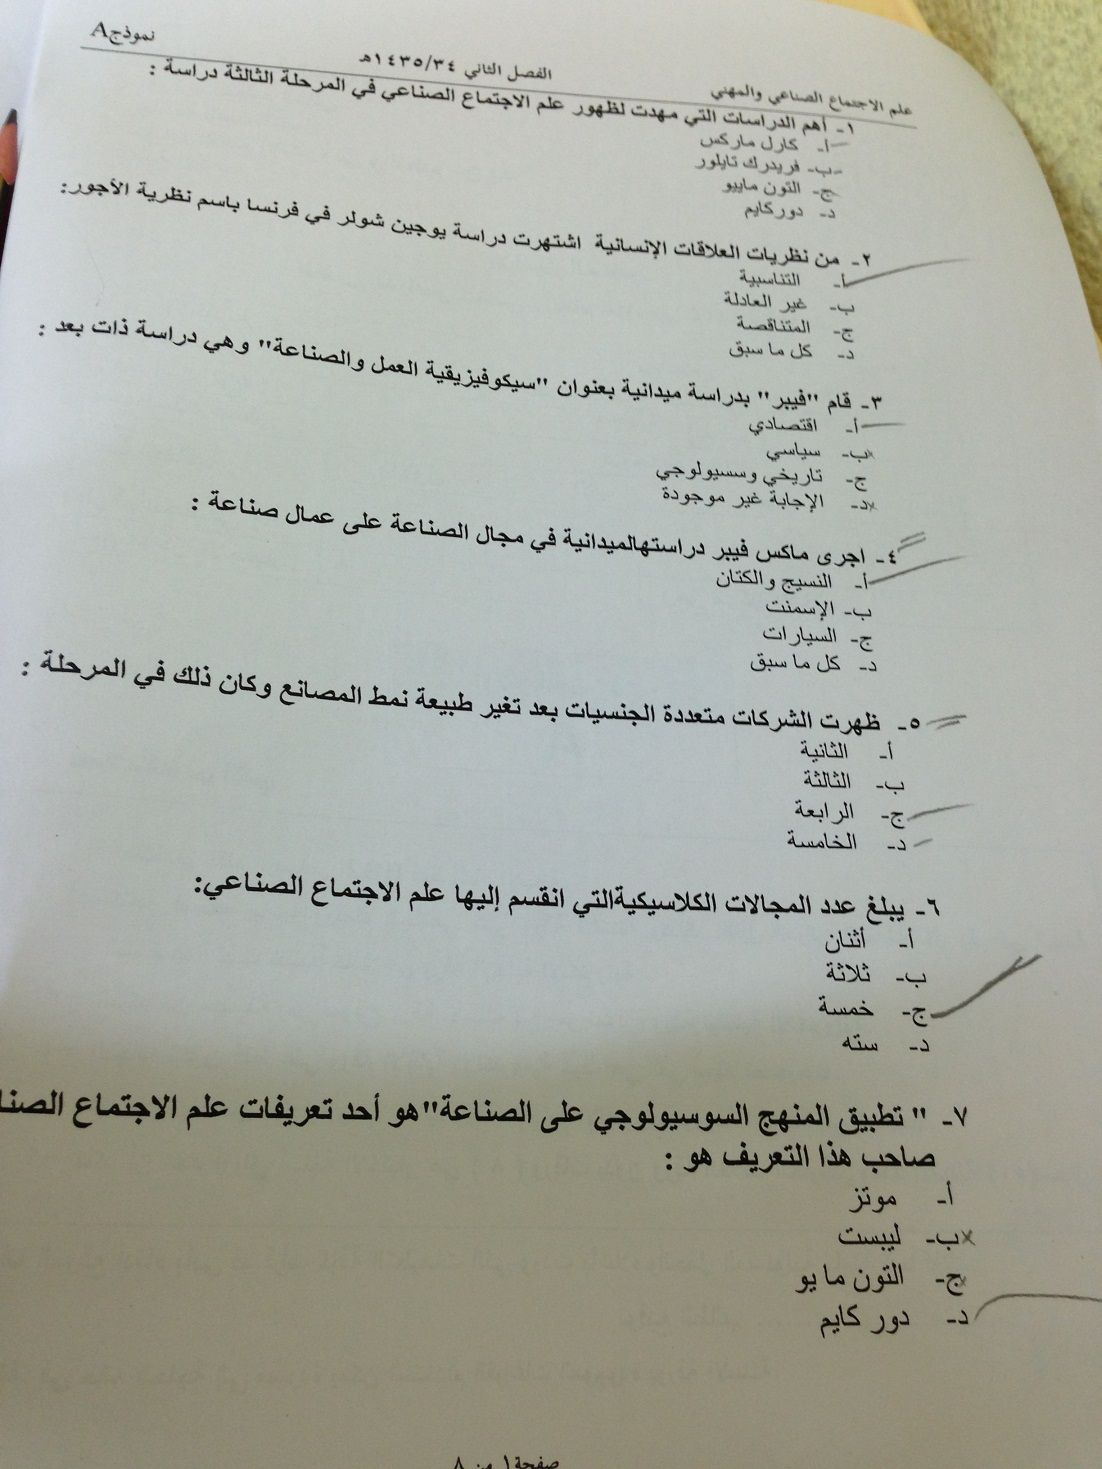 نموذجA
الفصل الثاني ١٤٣٥/٣٤هـ
علم الاجتماع الصناعي والمهني
١- أهم الدراسات التي مهدت لظهور علم الاجتماع الصناعي في المرحلة الثالثة دراسة :
أ- كارل ماركس
ب- فريدرك تايلور
ج- التون ماييو
د- دوركايم
٢- من نظريات العلاقات الإنسانية اشتهرت دراسة يوجين شولر في فرنسا باسم نظرية الأجور:
أ- التناسبية
ب- غير العادلة
ج- المتناقصة
د- كل ما سبق
٣- قام "فيبر" بدراسة ميدانية بعنوان "سيكوفيزيقية العمل والصناعة" وهي دراسة ذات بعد :
أ- اقتصادي
ب- سياسي
ج- تاريخي وسسيولوجي
د- الإجابة غير موجودة
٤- اجرى ماكس فيبر دراستهالميدانية في مجال الصناعة على عمال صناعة :
أ- النسيج والكتان
ب- الإسمنت
ج- السيارات
د- كل ما سبق
٥- ظهرت الشركات متعددة الجنسيات بعد تغير طبيعة نمط المصانع وكان ذلك في المرحلة :
أ- الثانية
ب- الثالثة
ج- الرابعة
د- الخامسة
٦- يبلغ عدد المجالات الكلاسيكيةالتي انقسم إليها علم الاجتماع الصناعي:
أ- أثنان
ب- ثلاثة
ج- خمسة
د- سته
٧- " تطبيق المنهج السوسيولوجي على الصناعة"هو أحد تعريفات علم الاجتماع الصنا
صاحب هذا التعريف هو :
أ- موتز
ب- ليبست
ج- التون ما يو
د- دور كايم
صفحة١ من ٨